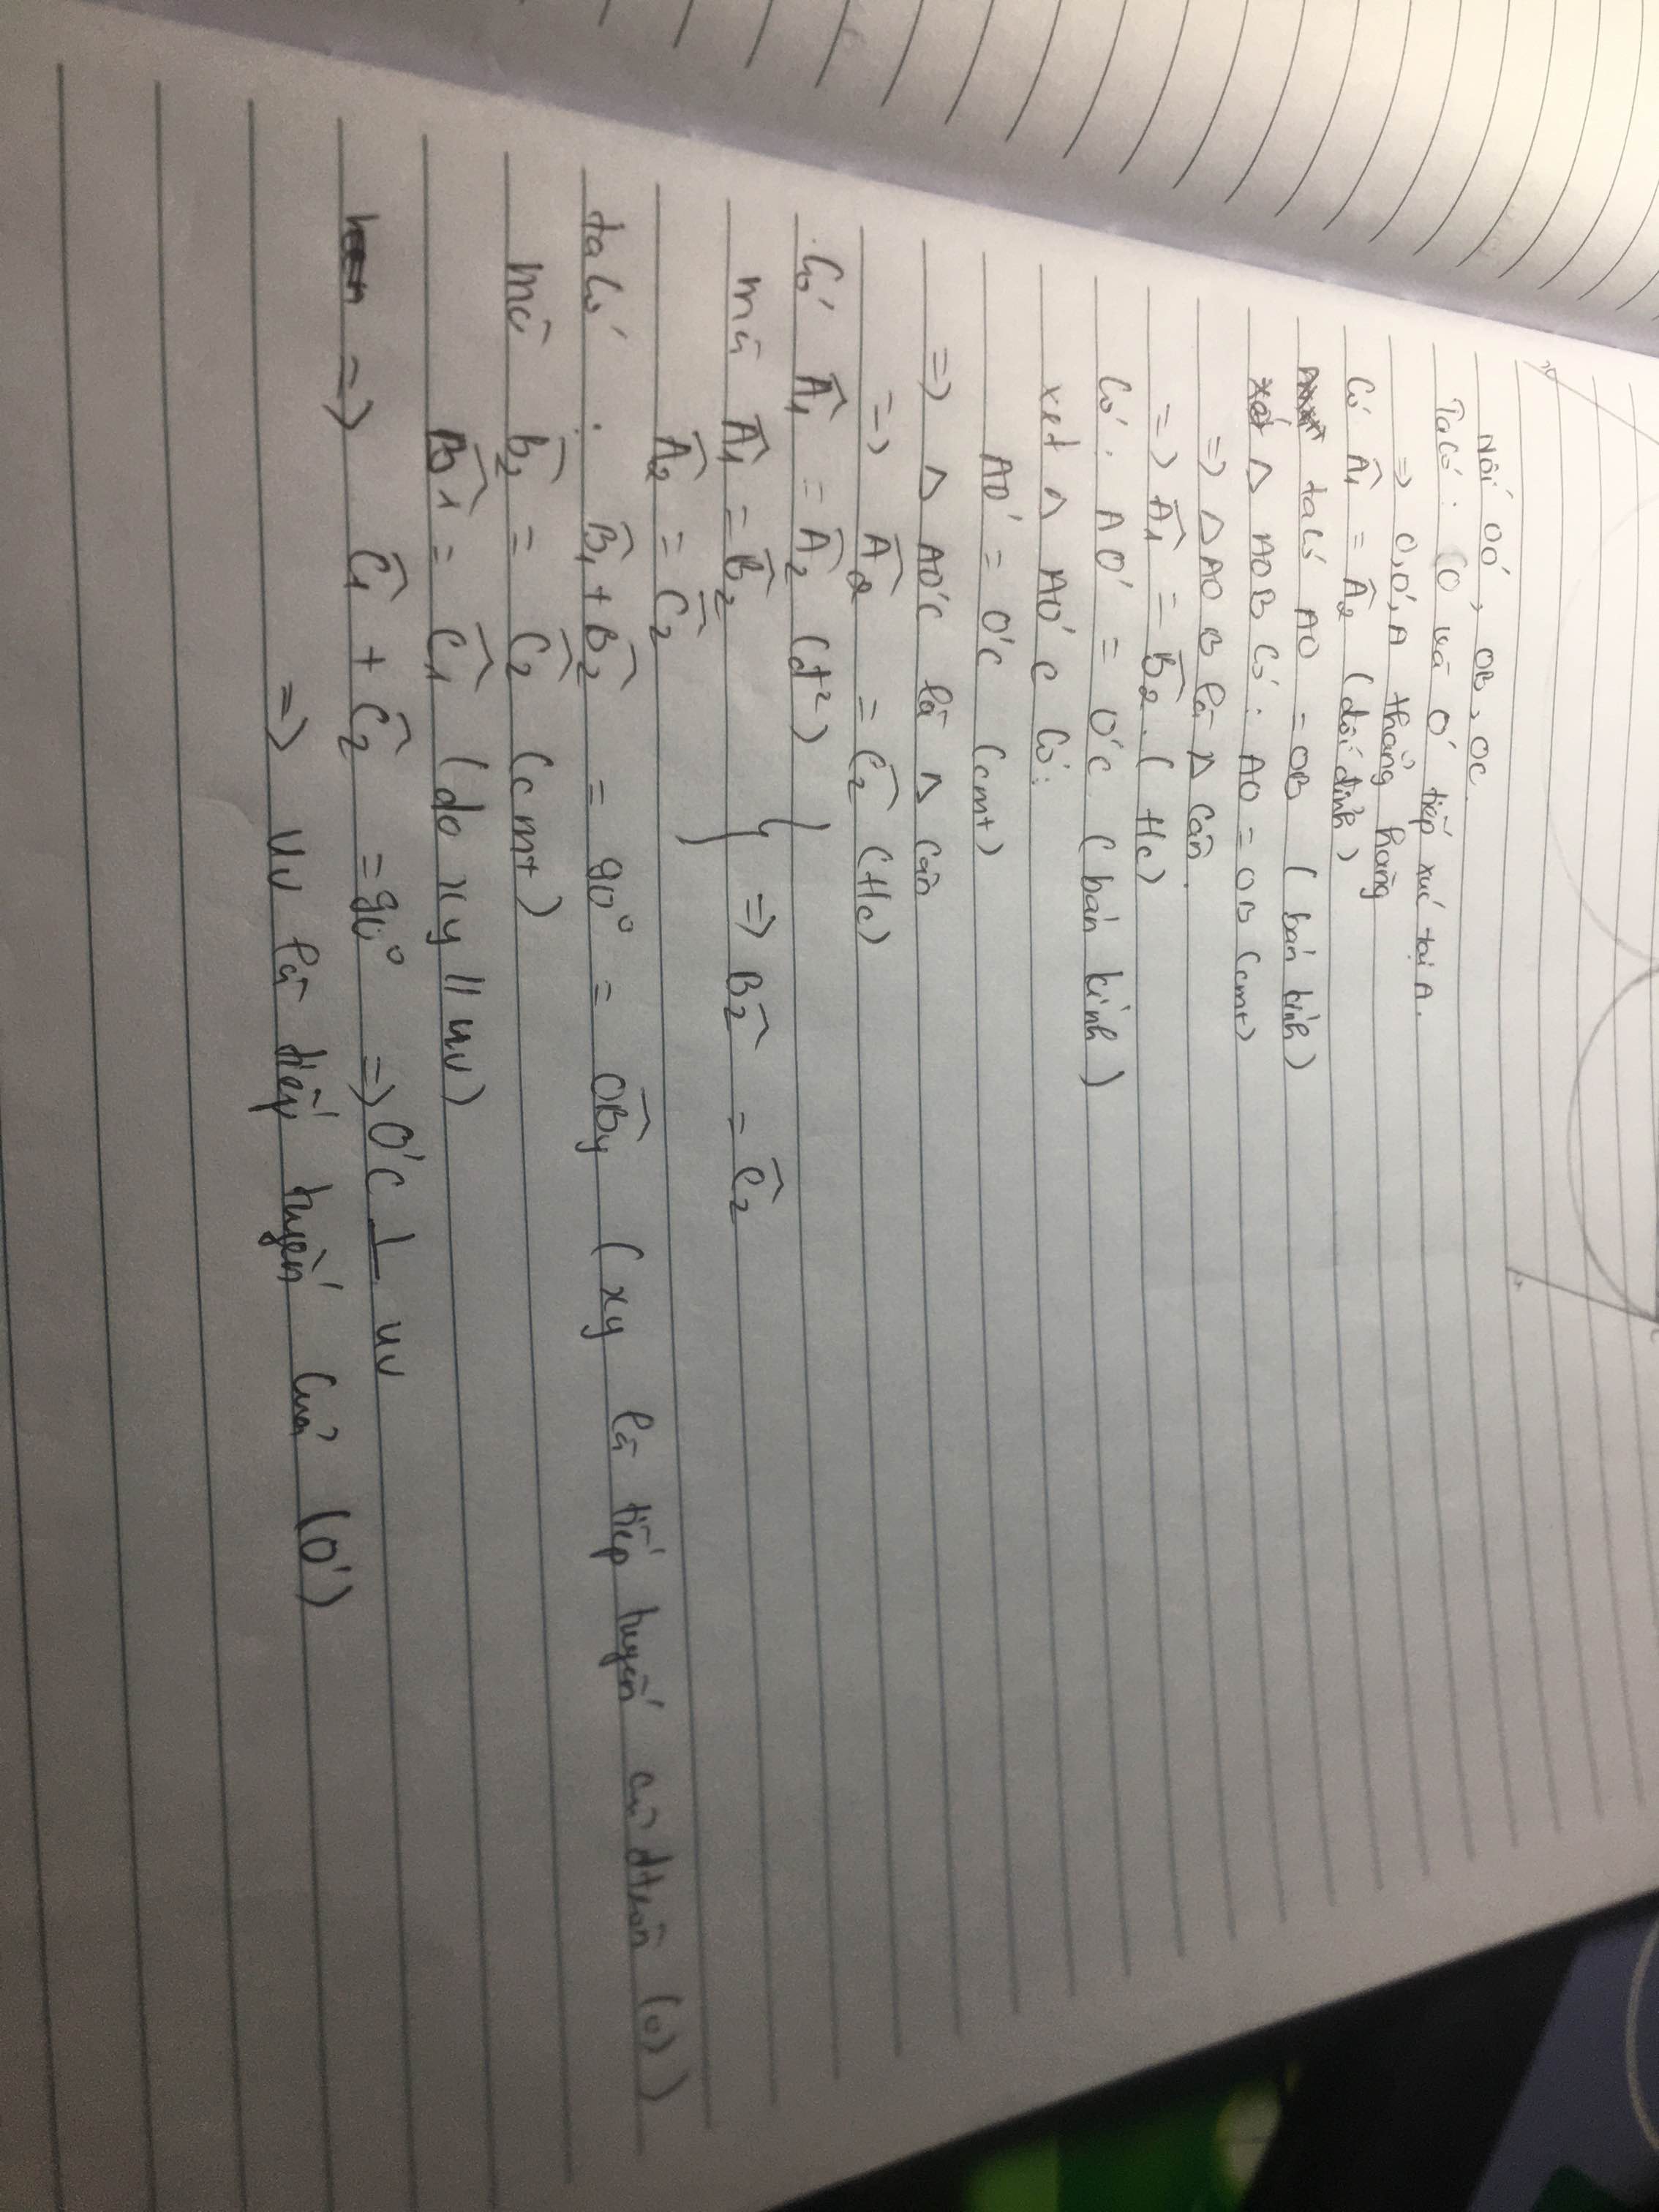 Nối OO', OB, OC.
Ta có: (O và O' tiếp xúc tại A.
=> O, O', A thẳng hàng
Có Â1 = Â2 (đối đỉnh)
ta có AO = OB (bán kính)
xét Δ AOB có: AO = OB (cmt)
=> Δ AOB là Δ cân.
=> Â1 = B̂2. (Hc)
Có: AO' = O'C (bán kính)
xét Δ AO'C có:
AO' = O'C (cmt)
=> Δ AO'C là Δ cân
=> Â2 = Ĉ2 (Hc)
Có Â1 = Â2 (đ²)
mà Â1 = B̂2 } => B̂2 = Ĉ2
Â2 = Ĉ2
ta có: B̂1 + B̂2 = 90° = OBy (xy là tiếp tuyến củ đtròn (O))
mà B̂2 = Ĉ2 (cmt)
B̂1 = Ĉ1 (do xy // uv)
=> Ĉ1 + Ĉ2 = 90° => O'C ⊥ uv
=> uv là tiếp tuyến của (O')